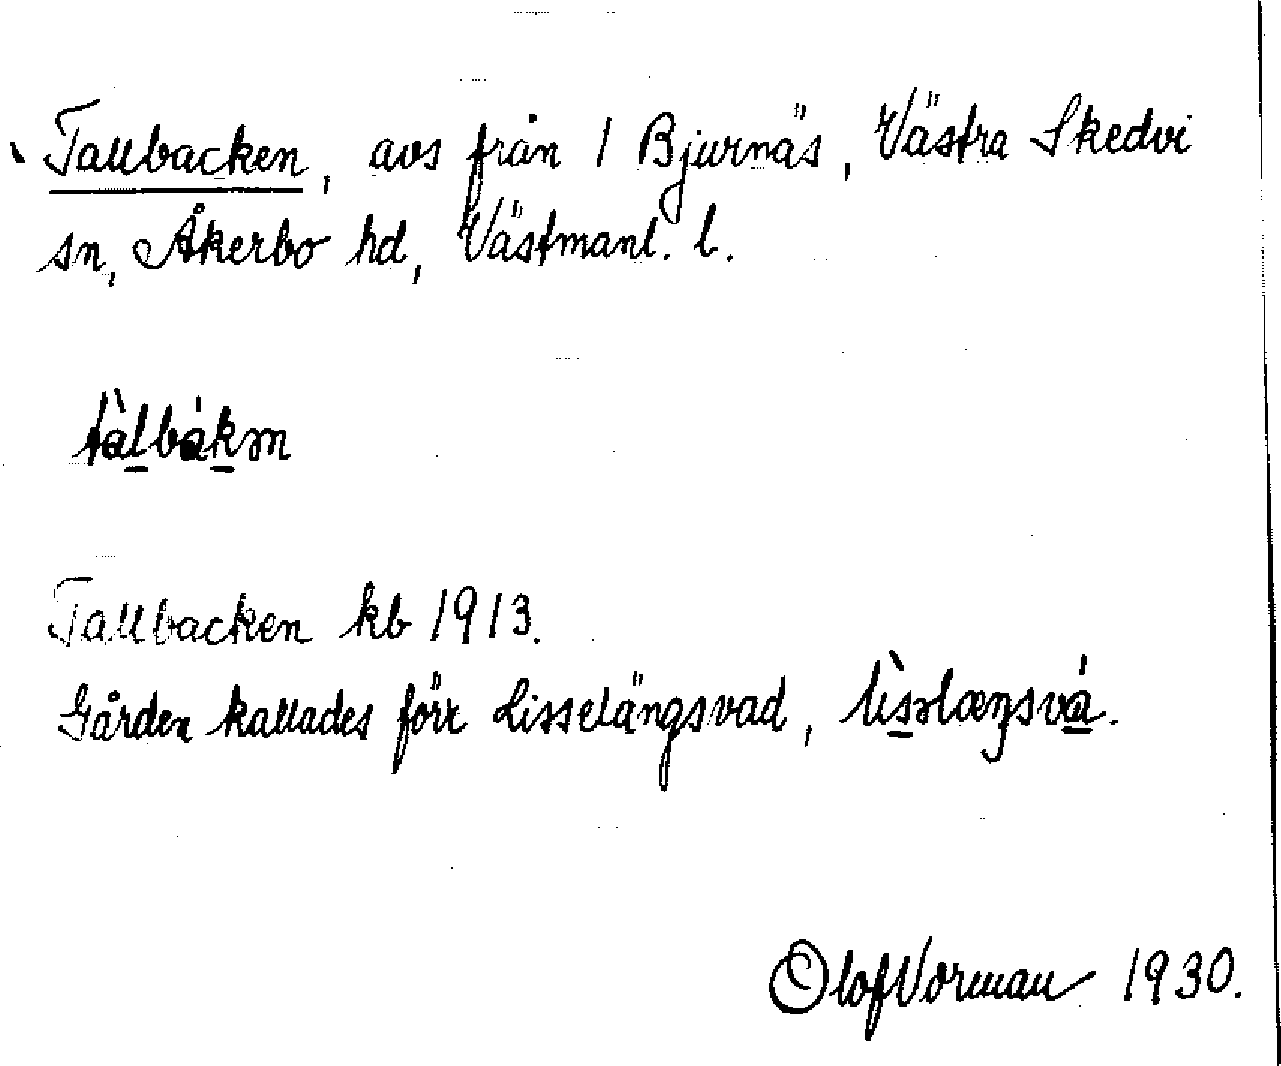 Tallbacken, avs från 1 Bjurnäs, Västra Skedvi
sn, Åkerbo hd, Västmanl. l.
tàlbákən
Tallbacken kb 1913.
Gården kallades förr Lisselängsvad, lìsəlæŋsvá.
Olof Vorman 1930.